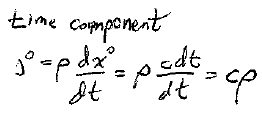 time component
j⁰ = ρ dx⁰/dt = ρ cdt/dt = cρ